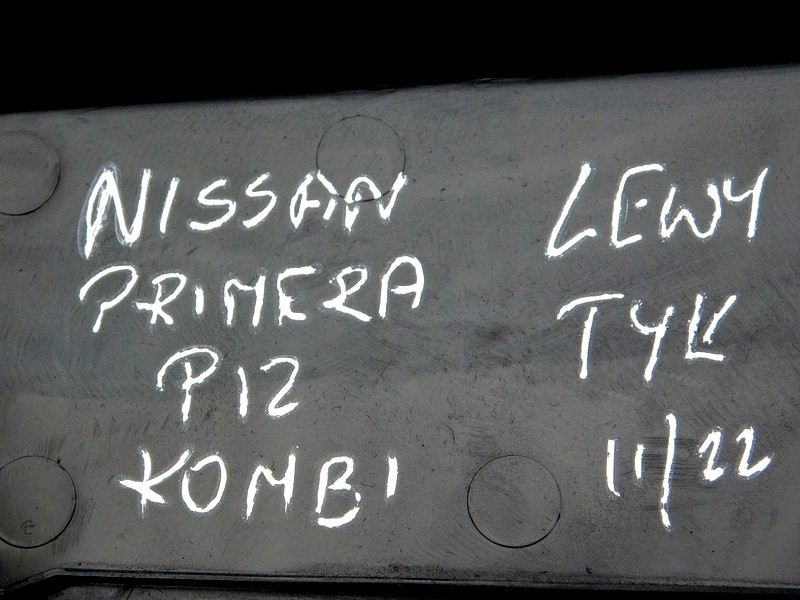 NISSAN
PRIMERA
P12
KOMBI
LEWY
TYŁ
11/22